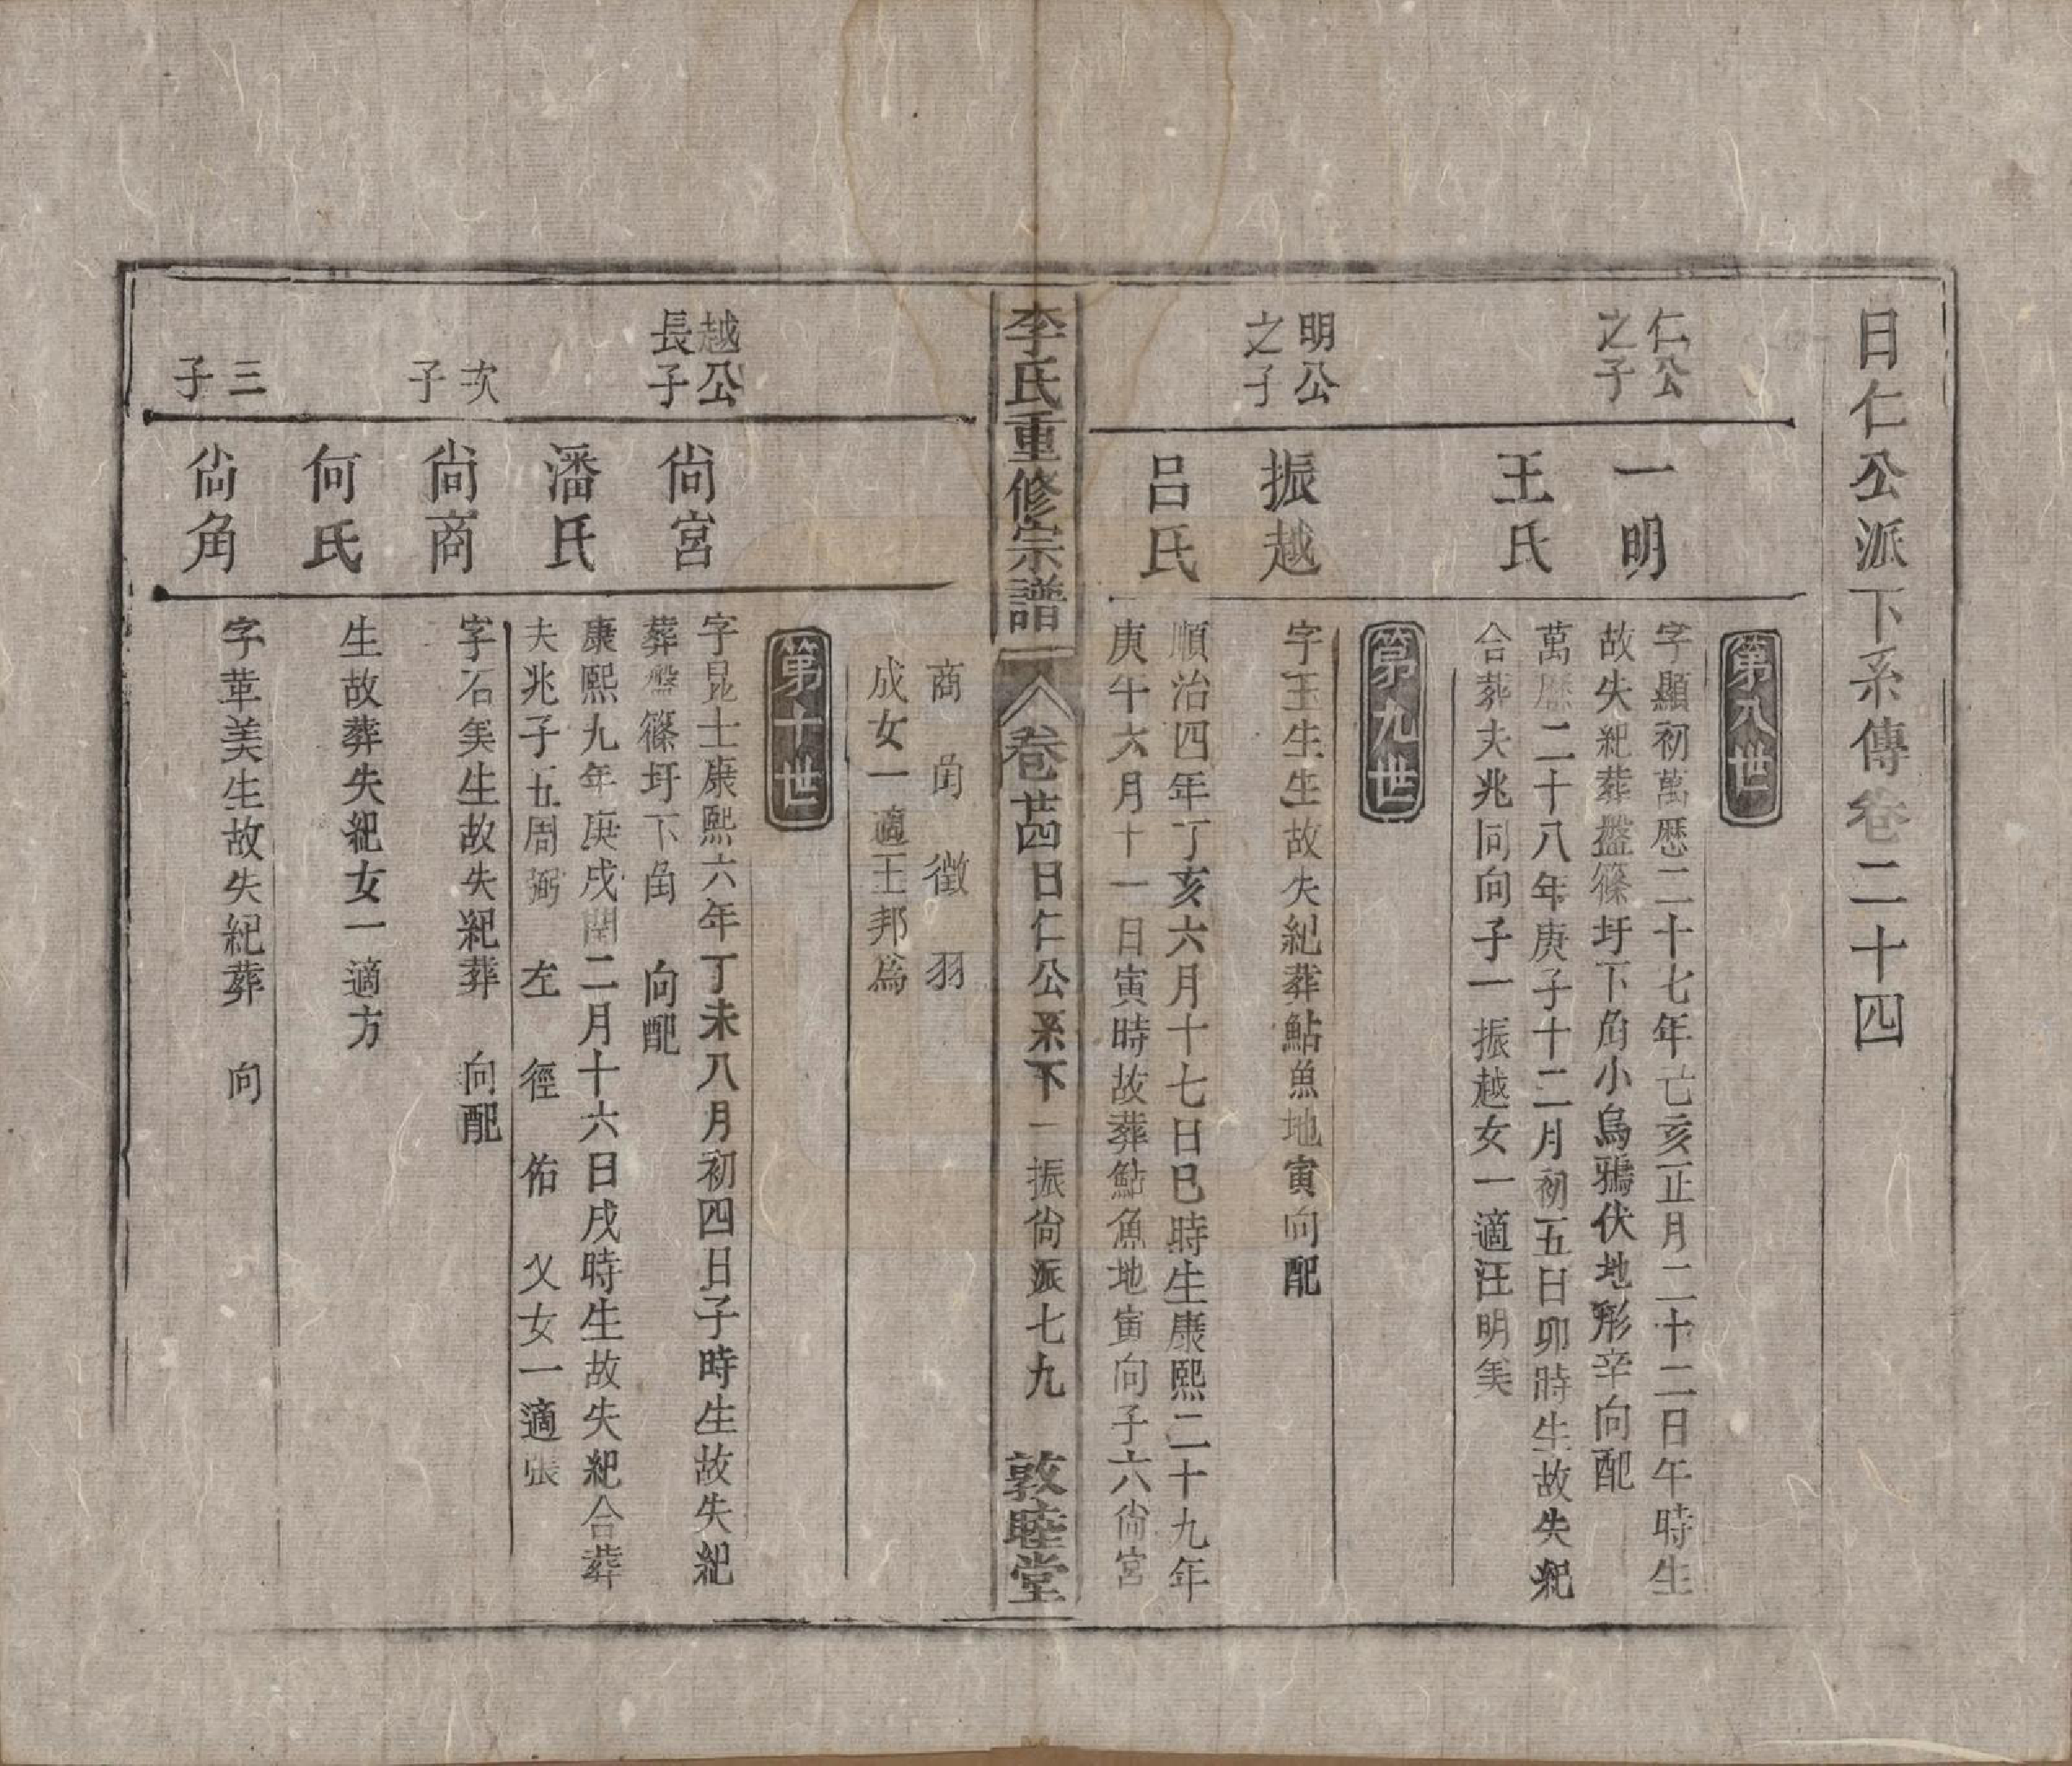 日仁公派下系傳卷二十四
第八世
仁公
之子
一明
字顯初萬歴二十七年亡亥正月二十二日午時生
故失紀葬盤篠圩下角小烏鴉伏地形辛向配
王氏
萬歴二十八年庚子十二月初五日卯時生故失紀
合葬夫兆同向子一振越女一適汪明矣
第九世
明公
之子
振越
字玉生生故失紀葬鮎魚地寅向配
呂氏
順治四年丁亥六月十七日巳時生康熙二十九年
庚午六月十一日寅時故葬鮎魚地寅向子六尙宮
李氏重修宗譜 卷廿四日仁公系下 一振尙派七九 敦睦堂
商 角 徵 羽
成女一適王邦爲
第十世
越公
長子
尙宮
字昆士康熙六年丁未八月初四日子時生故失紀
葬盤篠圩下角 向配
潘氏
康熙九年庚戌閏二月十六日戌時生故失紀合葬
夫兆子五周弼 左 徑 佑 乂女一適張
次
子
尙商
字石矣生故失紀葬 向配
何氏
生故葬失紀女一適方
三
子
尙角
字華美生故失紀葬 向